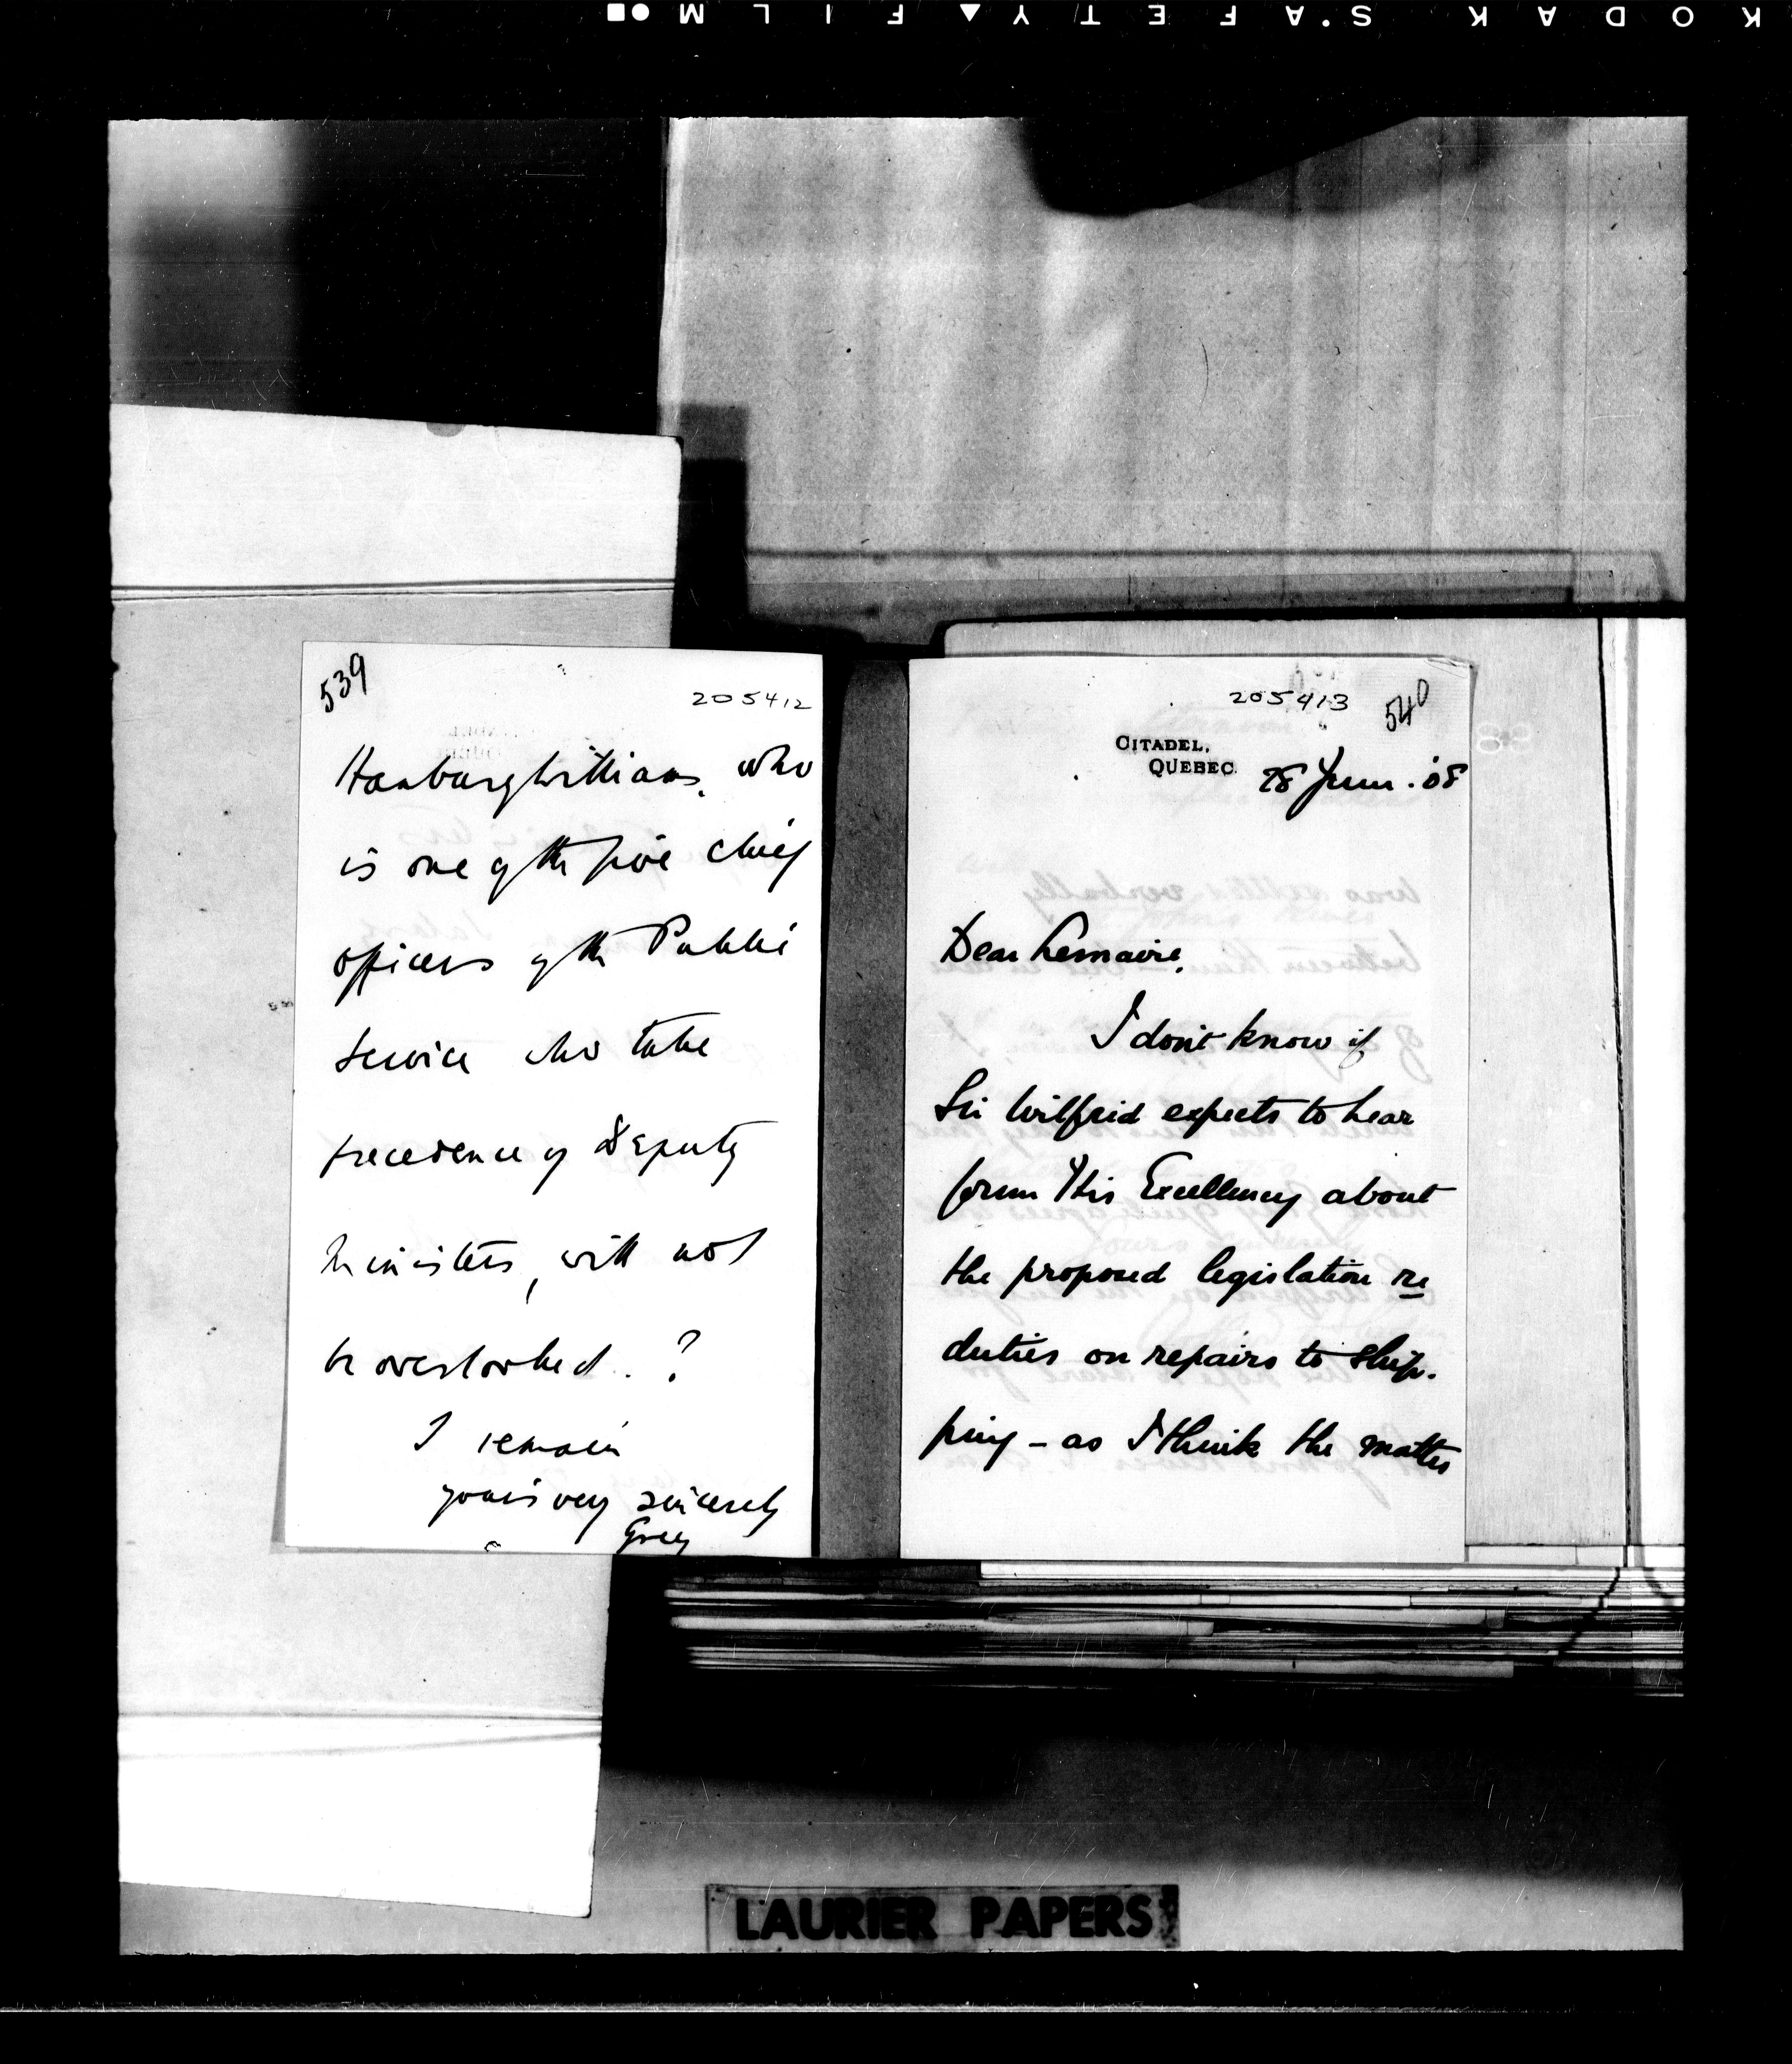 KODAK SAFETY FILM
539
205412
Hanbury Williams, who
is one of the five chief
officers of the Public
Service who take
precedence of Deputy
Ministers, will not
be overlooked. ?
I remain
yours very sincerely
Grey
205413
540
CITADEL,
QUEBEC.
28 June. '08
Dear Lemaire,
I don't know if
Sir Wilfrid expects to hear
from His Excellency about
the proposed legislation re
duties on repairs to ship-
ping - as I think the matter
LAURIER PAPERS